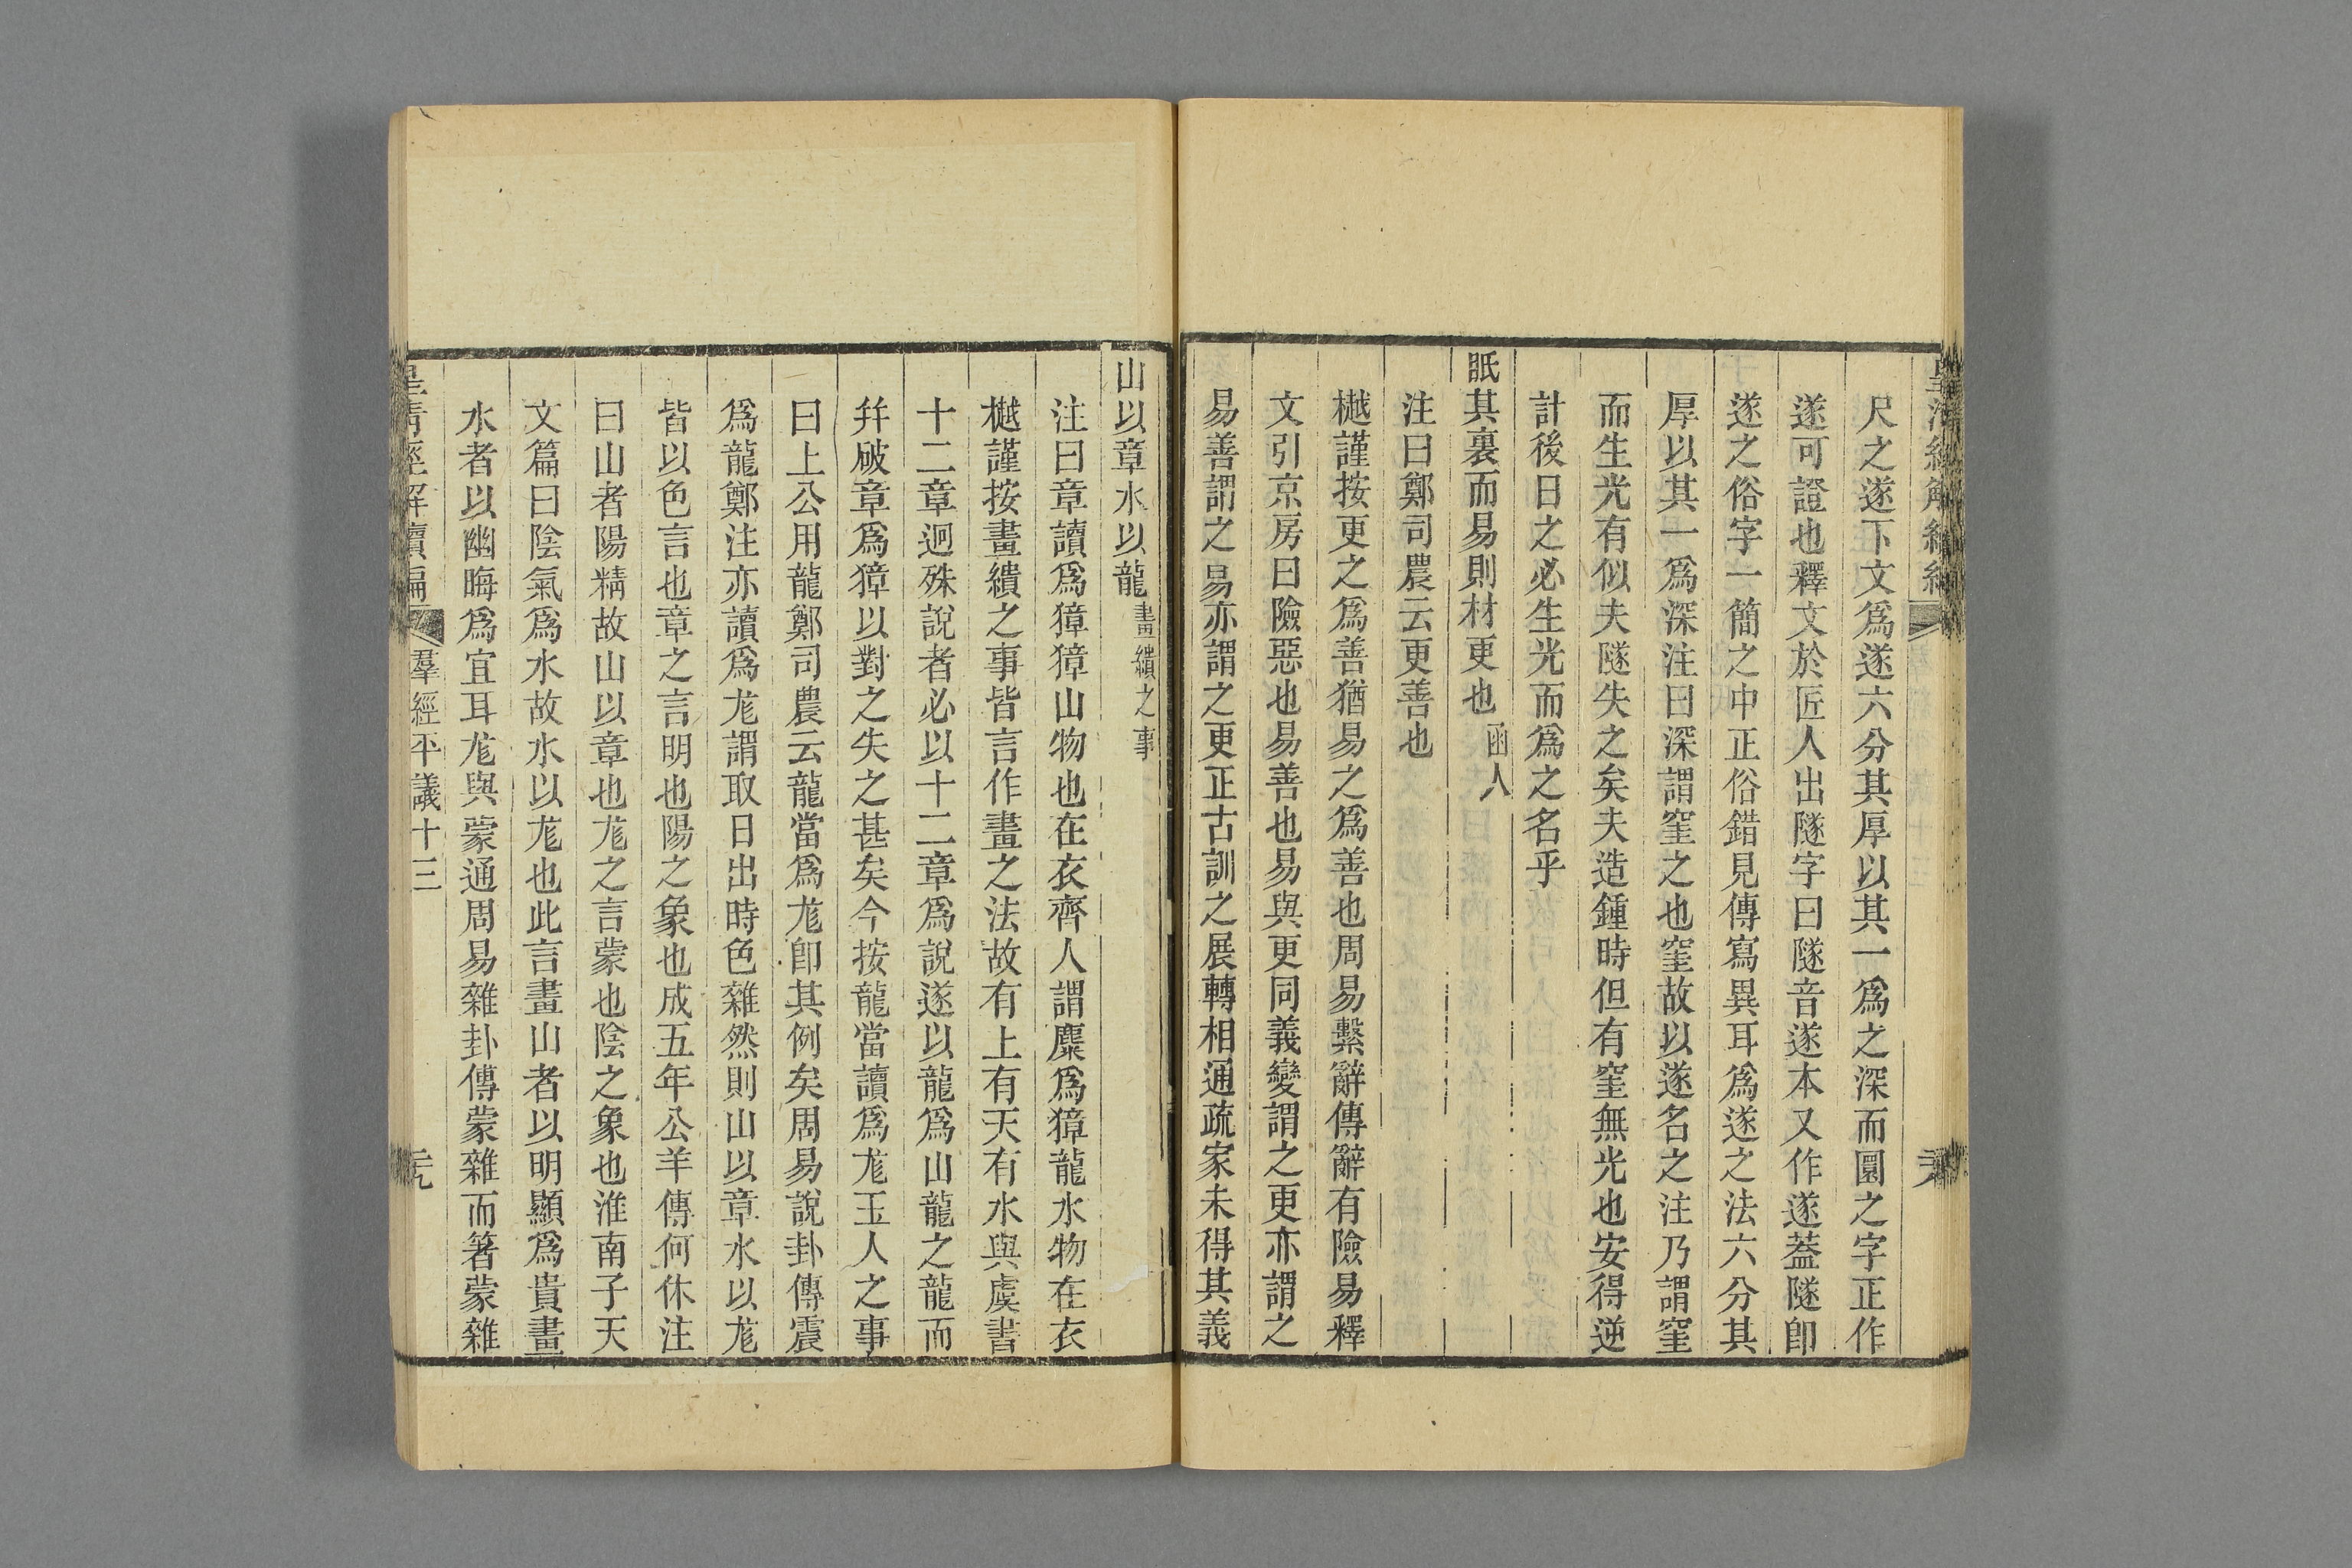 尺之遂下文爲遂六分其厚以其一爲之深而圜之字正作
遂可證也釋文於匠人出隧字曰隧音遂本又作遂蓋隧卽
遂之俗字一簡之中正俗錯見傳寫異耳爲遂之法六分其
厚以其一爲深注曰深謂窐之也窐故以遂名之注乃謂窐
而生光有似夫隧失之矣夫造鍾時但有窐無光也安得逆
計後日之必生光而爲之名乎
眂其裏而易則材更也函人
注曰鄭司農云更善也
樾謹按更之爲善猶易之爲善也周易繫辭傳辭有險易釋
文引京房曰險惡也易善也易與更同義變謂之更亦謂之
易善謂之易亦謂之更正古訓之展轉相通疏家未得其義
山以章水以龍畫繢之事
注曰章讀爲獐獐山物也在衣齊人謂麇爲獐龍水物在衣
樾謹按畫繢之事皆言作畫之法故有上有天有水與虞書
十二章迥殊說者必以十二章爲說遂以龍爲山龍之龍而
幷破章爲獐以對之失之甚矣今按龍當讀爲尨玉人之事
曰上公用龍鄭司農云龍當爲尨卽其例矣周易說卦傳震
爲龍鄭注亦讀爲尨謂取日出時色雜然則山以章水以尨
皆以色言也章之言明也陽之象也成五年公羊傳何休注
曰山者陽精故山以章也尨之言蒙也陰之象也淮南子天
文篇曰陰氣爲水故水以尨也此言畫山者以明顯爲貴畫
水者以幽晦爲宜耳尨與蒙通周易雜卦傳蒙雜而箸蒙雜
皇清經解續編 羣經平議十三 二九